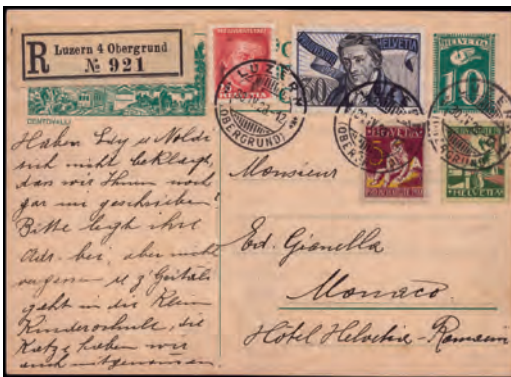 R Luzern 4 Obergrund
№ 921
CENTOVALLI
HELVETIA
HELVETIA
10
LUZERN
(OBERGRUND)
5
HELVETIA
Haben Edy u Noldi
sich nicht beklagt,
dass wir Ihnen noch
gar nie geschrieben?
Bitte legt ihre
Adr. bei, aber nicht
vergessen
geht in die Klein
Kinderschule, die
Katze haben wir
auch mitgenommen
Monsieur
Ed. Gianella
Monaco.
Hôtel Helvetia-